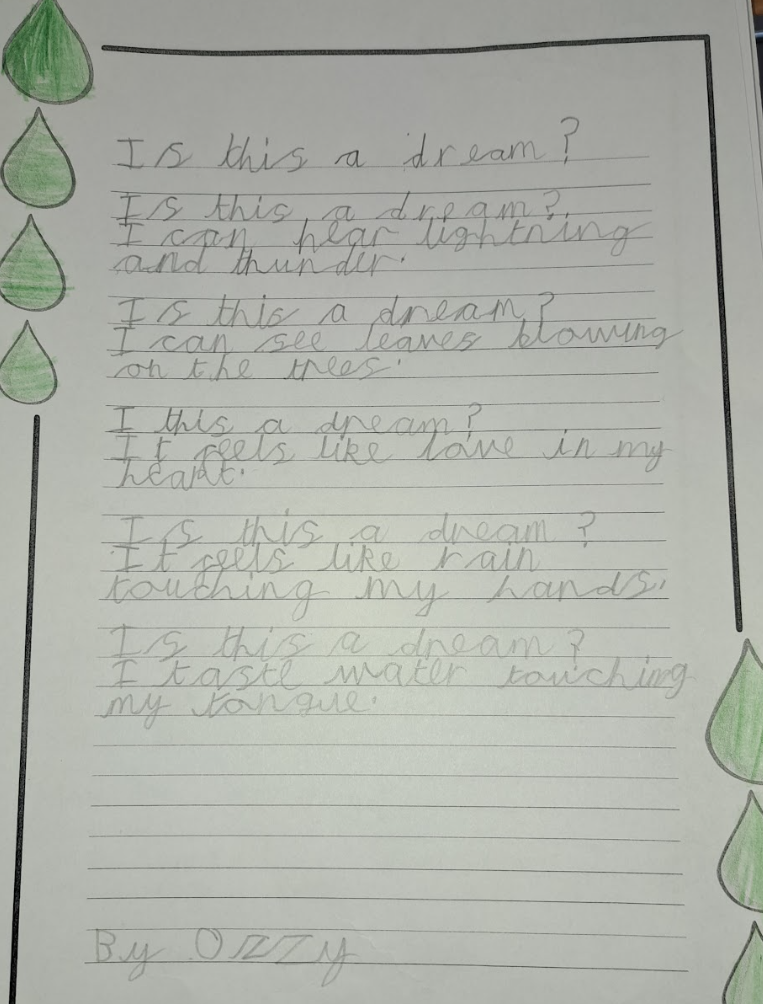 Is this a dream?
Is this a dream?
I can hear lightning
and thunder.
Is this a dream?
I can see leaves blowing
on the trees.
I this a dream?
It feels like love in my
heart.
Is this a dream?
It feels like rain
touching my hands.
Is this a dream?
I taste water touching
my tongue.
By Ozzy